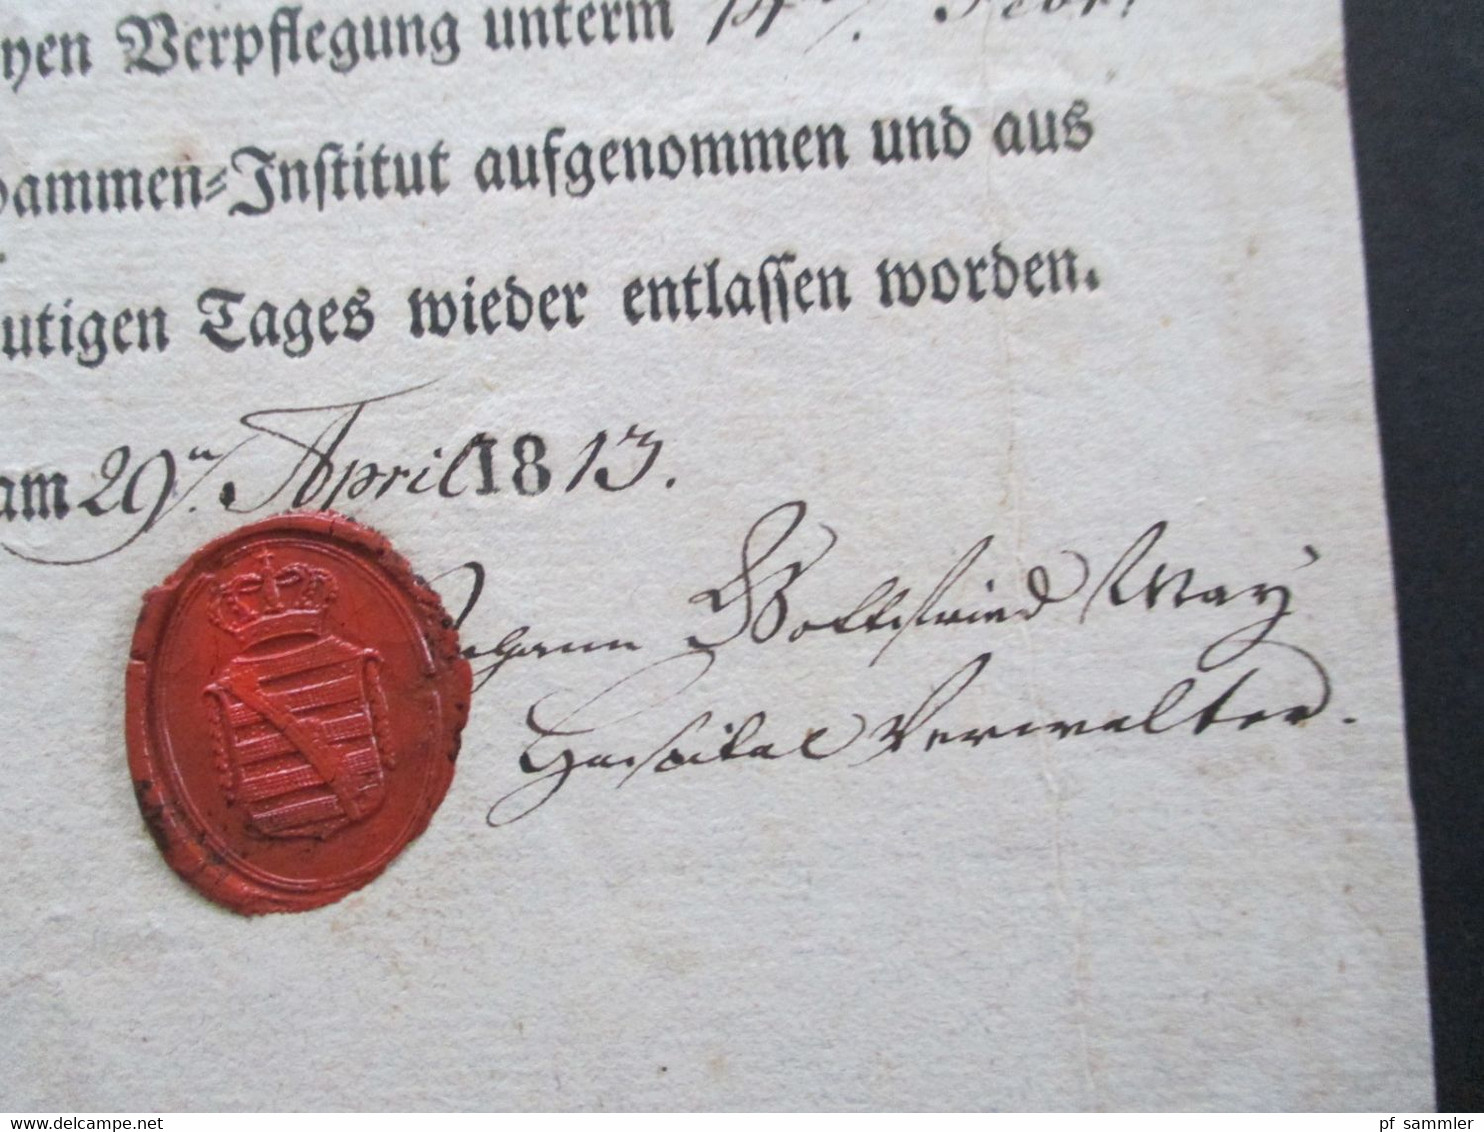 yen Verpflegung unterm 14
ammen=Institut aufgenommen und aus
utigen Tages wieder entlassen worden.
am 29n April 1813.
Johann Gottfried May
Hospital Verwalter.
pf sammler
www.delcampe.net